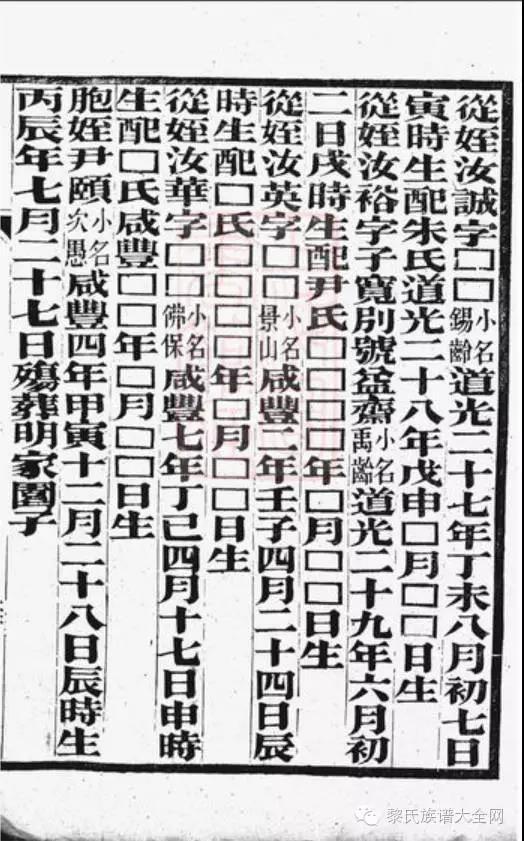 從姪汝誠字□□小名錫齡道光二十七年丁未八月初七日
寅時生配朱氏道光二十八年戊申□月□□日生
從姪汝裕字子寬別號益齋小名禹齡道光二十九年六月初
二日戌時生配尹氏□□□□年□月□□日生
從姪汝英字□□小名景山咸豐二年壬子四月二十四日辰
時生配□氏□□□□年□月□□日生
從姪汝華字□□小名佛保咸豐七年丁巳四月十七日申時
生配□氏咸豐□□年□月□□日生
胞姪尹頤小名次愚咸豐四年甲寅十二月二十八日辰時生
丙辰年七月二十七日殤葬明家園子
黎氏族谱大全网